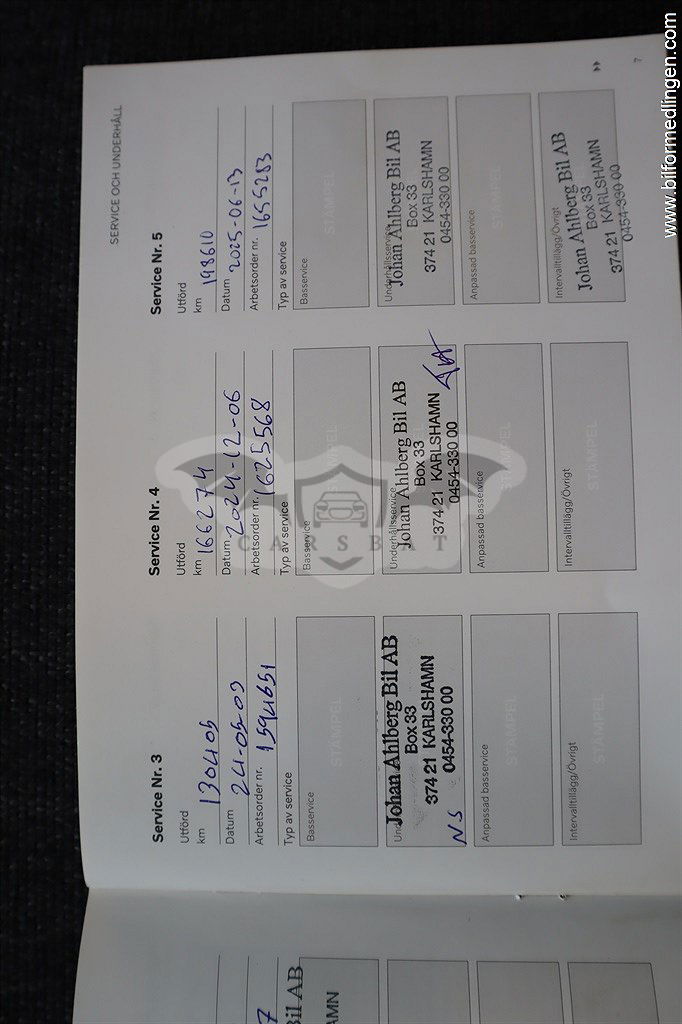 SERVICE OCH UNDERHÅLL
Service Nr. 3
Utförd
km 130405
Datum 24-05-03
Arbetsorder nr. 1594651
Typ av service
Basservice
STÄMPEL
Johan Ahlberg Bil AB
Box 33
374 21 KARLSHAMN
0454-330 00
NS
Anpassad basservice
STÄMPEL
Intervalltillägg/Övrigt
STÄMPEL
Service Nr. 4
Utförd
km 166274
Datum 2024-12-06
Arbetsorder nr. 1625568
Typ av service
Basservice
STÄMPEL
Underhållsservice
Johan Ahlberg Bil AB
Box 33
374 21 KARLSHAMN
0454-330 00
Anpassad basservice
STÄMPEL
Intervalltillägg/Övrigt
STÄMPEL
Service Nr. 5
Utförd
km 198610
Datum 2025-06-13
Arbetsorder nr. 1655283
Typ av service
Basservice
STÄMPEL
Underhållsservice
Johan Ahlberg Bil AB
Box 33
374 21 KARLSHAMN
0454-330 00
Anpassad basservice
STÄMPEL
Intervalltillägg/Övrigt
Johan Ahlberg Bil AB
Box 33
374 21 KARLSHAMN
0454-330 00
7
CARSBAT
www.bilformedlingen.com